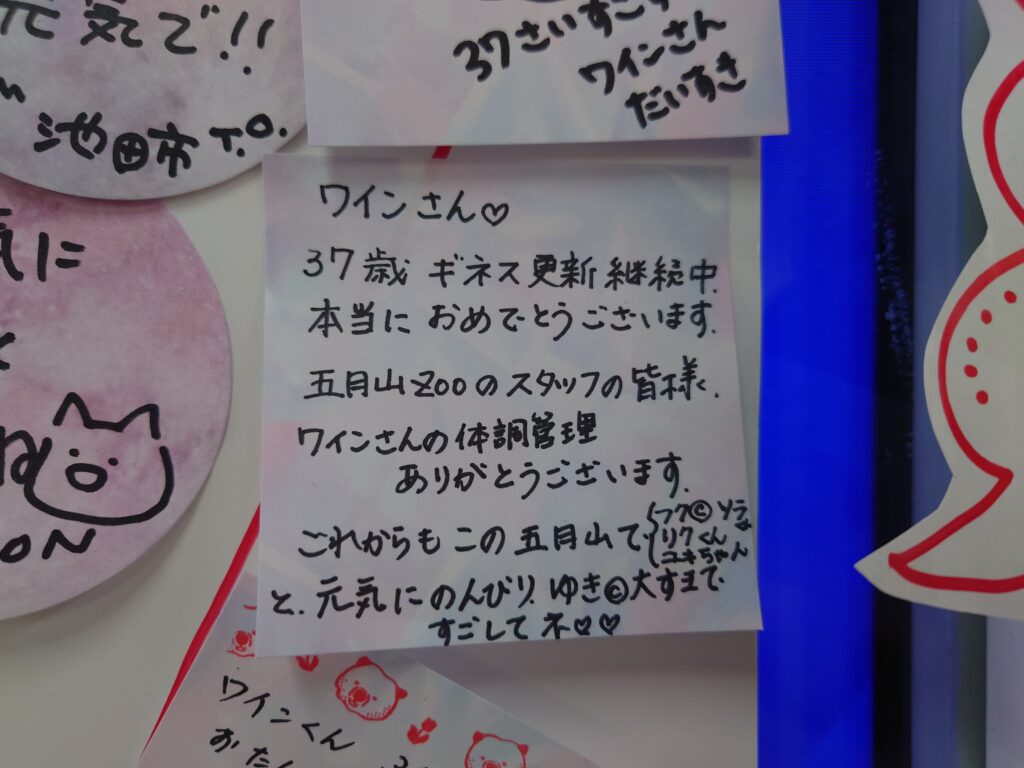 元気で!!
池田市 T.O.
37さいすごす
ワインさん
だいすき
気に
ON
ワインさん♡
37歳 ギネス更新継続中.
本当に おめでとうございます.
五月山ZOOのスタッフの皆様.
ワインさんの体調管理
ありがとうございます.
これからも この 五月山で. フク© ソラ
リクくん
ユキちゃん
と. 元気に のんびり. ゆき©
すごして ネ♡♡
ワインくん
おた